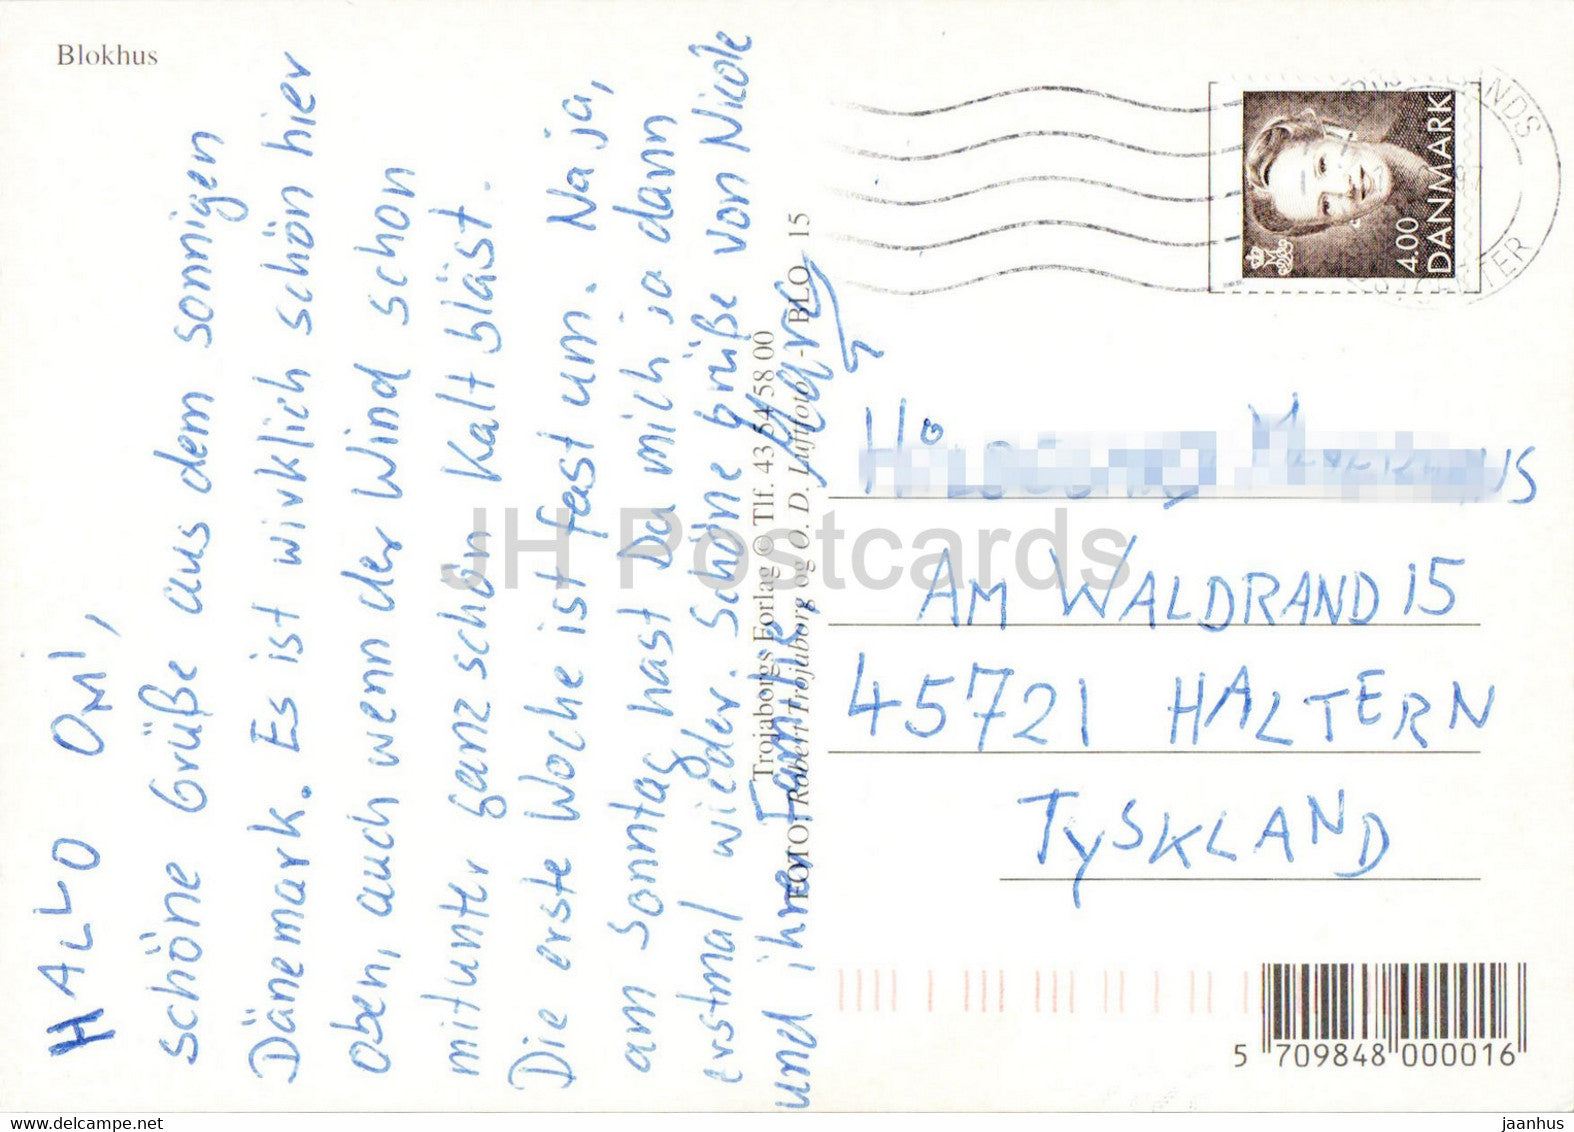 Blokhus
HALLO OMI,
schöne Grüße aus dem sonnigen
Dänemark. Es ist wirklich schön hier
oben, auch wenn der Wind schon
mitunter ganz schön kalt bläst.
Die erste Woche ist fast um. Na ja,
am Sonntag hast Du mich ja dann
erstmal wieder. Schöne Grüße von Nicole
und ihrer Familie,
Trojaborgs Forlag © Tlf. 43 54 58 00
FOTO: Robert Trojaborg og O. D. Luftfoto - BLO 15
4.00
DANMARK
AM WALDRAND 15
45721 HALTERN
TYSKLAND
5 709848 000016
JH Postcards
jaanhus